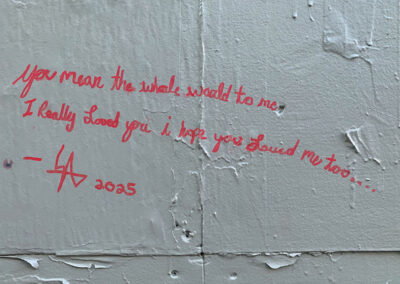 you mean the whole world to me,
I Really Loved you i hope you Loved me too....
- LA 2025